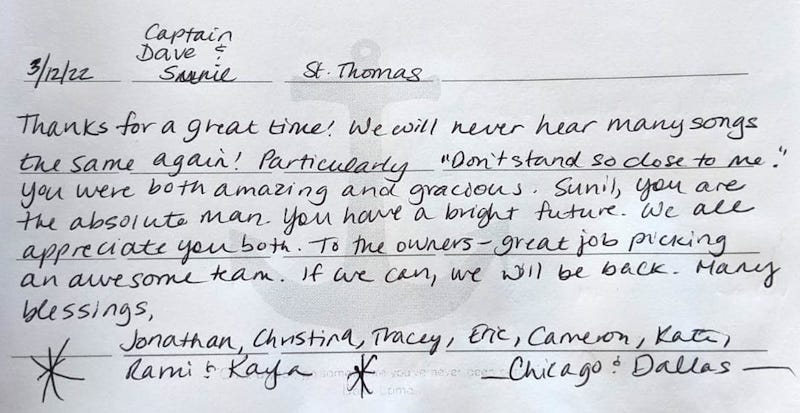 Captain
Dave &
3/12/22 Sunie St. Thomas
Thanks for a great time! We will never hear many songs
the same again! Particularly "Don't stand so close to me."
You were both amazing and gracious. Sunil, you are
the absolute man. You have a bright future. We all
appreciate you both. To the owners - great job picking
an awesome team. If we can, we will be back. Many
blessings,
Jonathan, Christina, Tracey, Eric, Cameron, Kate,
Rami & Kaya
Chicago & Dallas
you've never been